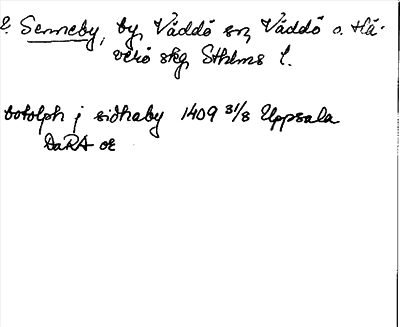 2. Senneby, by, Väddö sn, Väddö o. Hä-
verö skg, Sthlms l.
botolph j sidhaby 1409 31/8 Uppsala
DaRA or